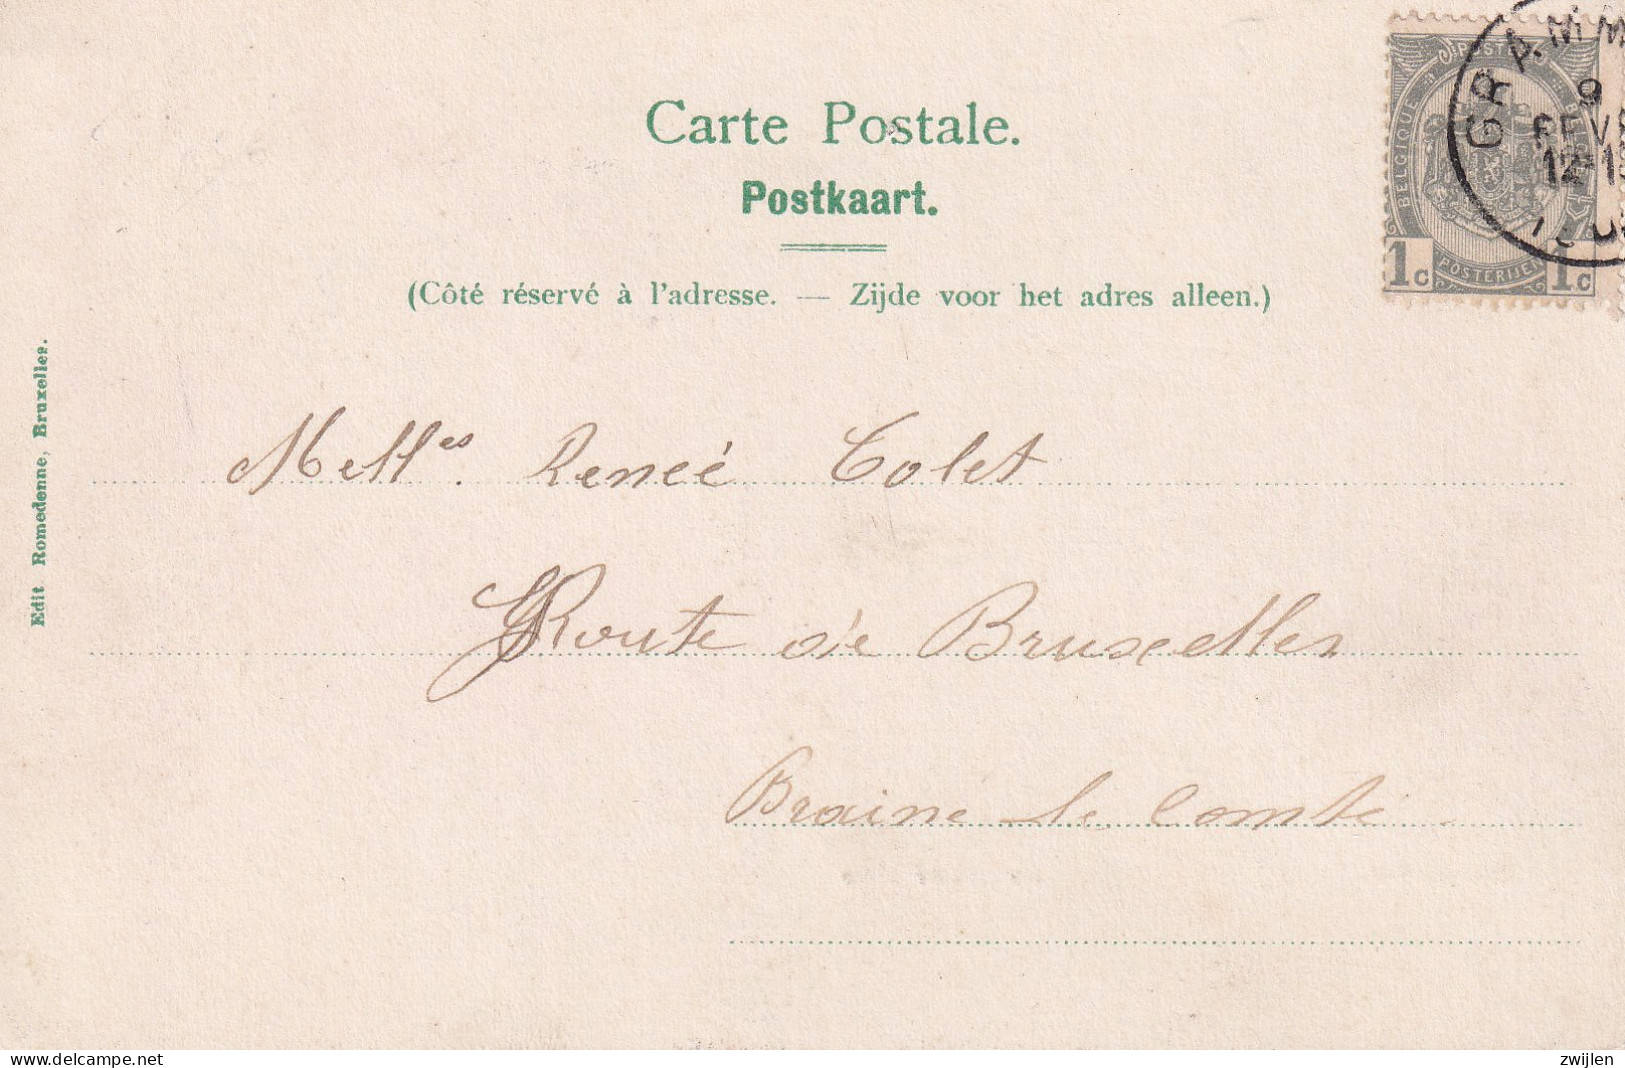 Carte Postale.
Postkaart.
(Côté réservé à l'adresse. — Zijde voor het adres alleen.)
POSTES
BELGIQUE
POSTERIJEN
1c 1c
GRAMM
9
FEVR
12-1
Edit Romedenne, Bruxelles.
Melles. Reneé Colet
Route de Bruxelles
Braine le Comte
delcampe.net
zwijlen